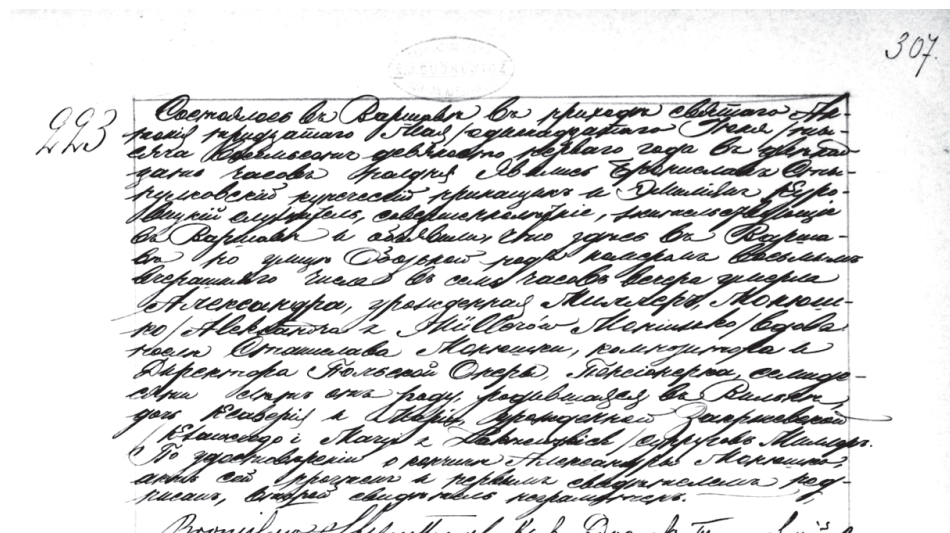 307.
223
Состоялось въ Варшавѣ въ приходѣ святаго Ан-
тонія тридцатаго Мая /одинадцатаго Іюня/ ты-
сяча восемьсотъ девяносто перваго года въ
часовъ полдня. Явились Брониславъ
купческій прикащикъ и Куро-
служитель, совершеннолѣтніе, жительствующіе
въ Варшавѣ и объявили, что здѣсь въ Варша-
вѣ по улицѣ Обозьной подъ номеромъ восьмымъ
вчерашняго числа въ семь часовъ вечера умерла
Александра, урожденная Миллеръ, Монюш-
ко /Aleksandra z Müllerów Moniuszko/ вдова
послѣ Станислава Монюшки, композитора и
Директора Польской Оперы, Пенсіонерка, семиде-
сяти лѣтъ отъ роду, родившаяся въ Вильнѣ,
дочь Ксаверія и Маріи, урожденной
/Ksawerego i Maryi z / супруговъ Миллеръ.
По удостовѣреніи о кончинѣ Александры Монюшко,
актъ сей прочтенъ и первымъ свидѣтелемъ под-
писанъ, второй свидѣтель неграмотенъ.